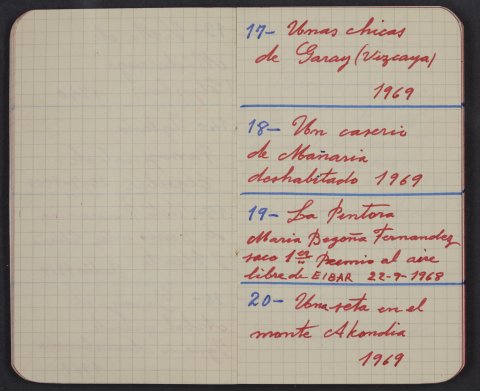 17- Unas chicas
de Garay (Vizcaya)
1969
18- Un caserio
de Mañaria
deshabitado 1969
19- La Pintora
Maria Begoña Fernandez
saco 1er Premio al aire
libre de EIBAR 22-9-1968
20- Una seta en el
monte Akondia
1969